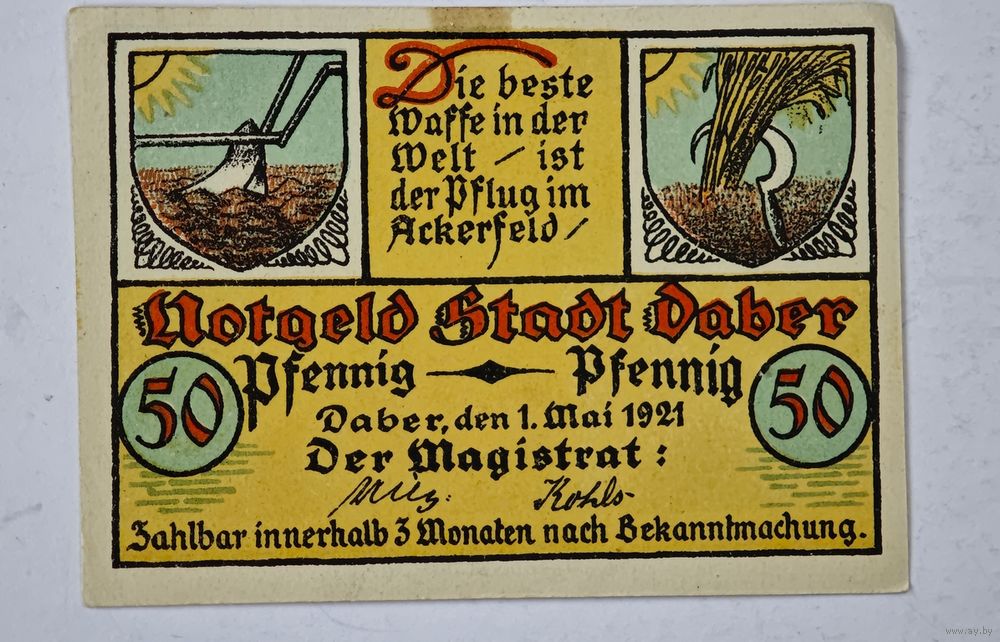 Die beste
Waffe in der
Welt / ist
der Pflug im
Ackerfeld /
Notgeld Stadt Daber
50 Pfennig Pfennig 50
Daber, den 1. Mai 1921
Der Magistrat:
Kohls
Zahlbar innerhalb 3 Monaten nach Bekanntmachung.
www.ay.by